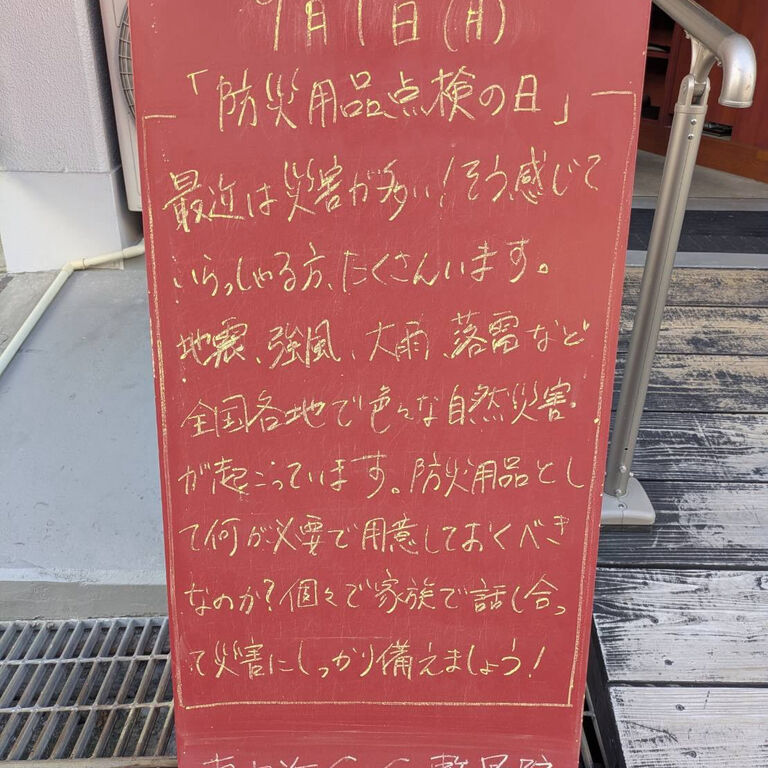 9月1日(月)
「防災用品点検の日」
最近は災害が多い!そう感じて
いらっしゃる方、たくさんいます。
地震、強風、大雨、落雷など
全国各地で色々な自然災害
が起こっています。防災用品とし
て何が必要で用意しておくべき
なのか?個々で家族で話し合っ
て災害にしっかり備えましょう!
整骨院